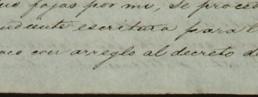 fojas por mi, se proced
escritura para l
con arreglo al decreto d